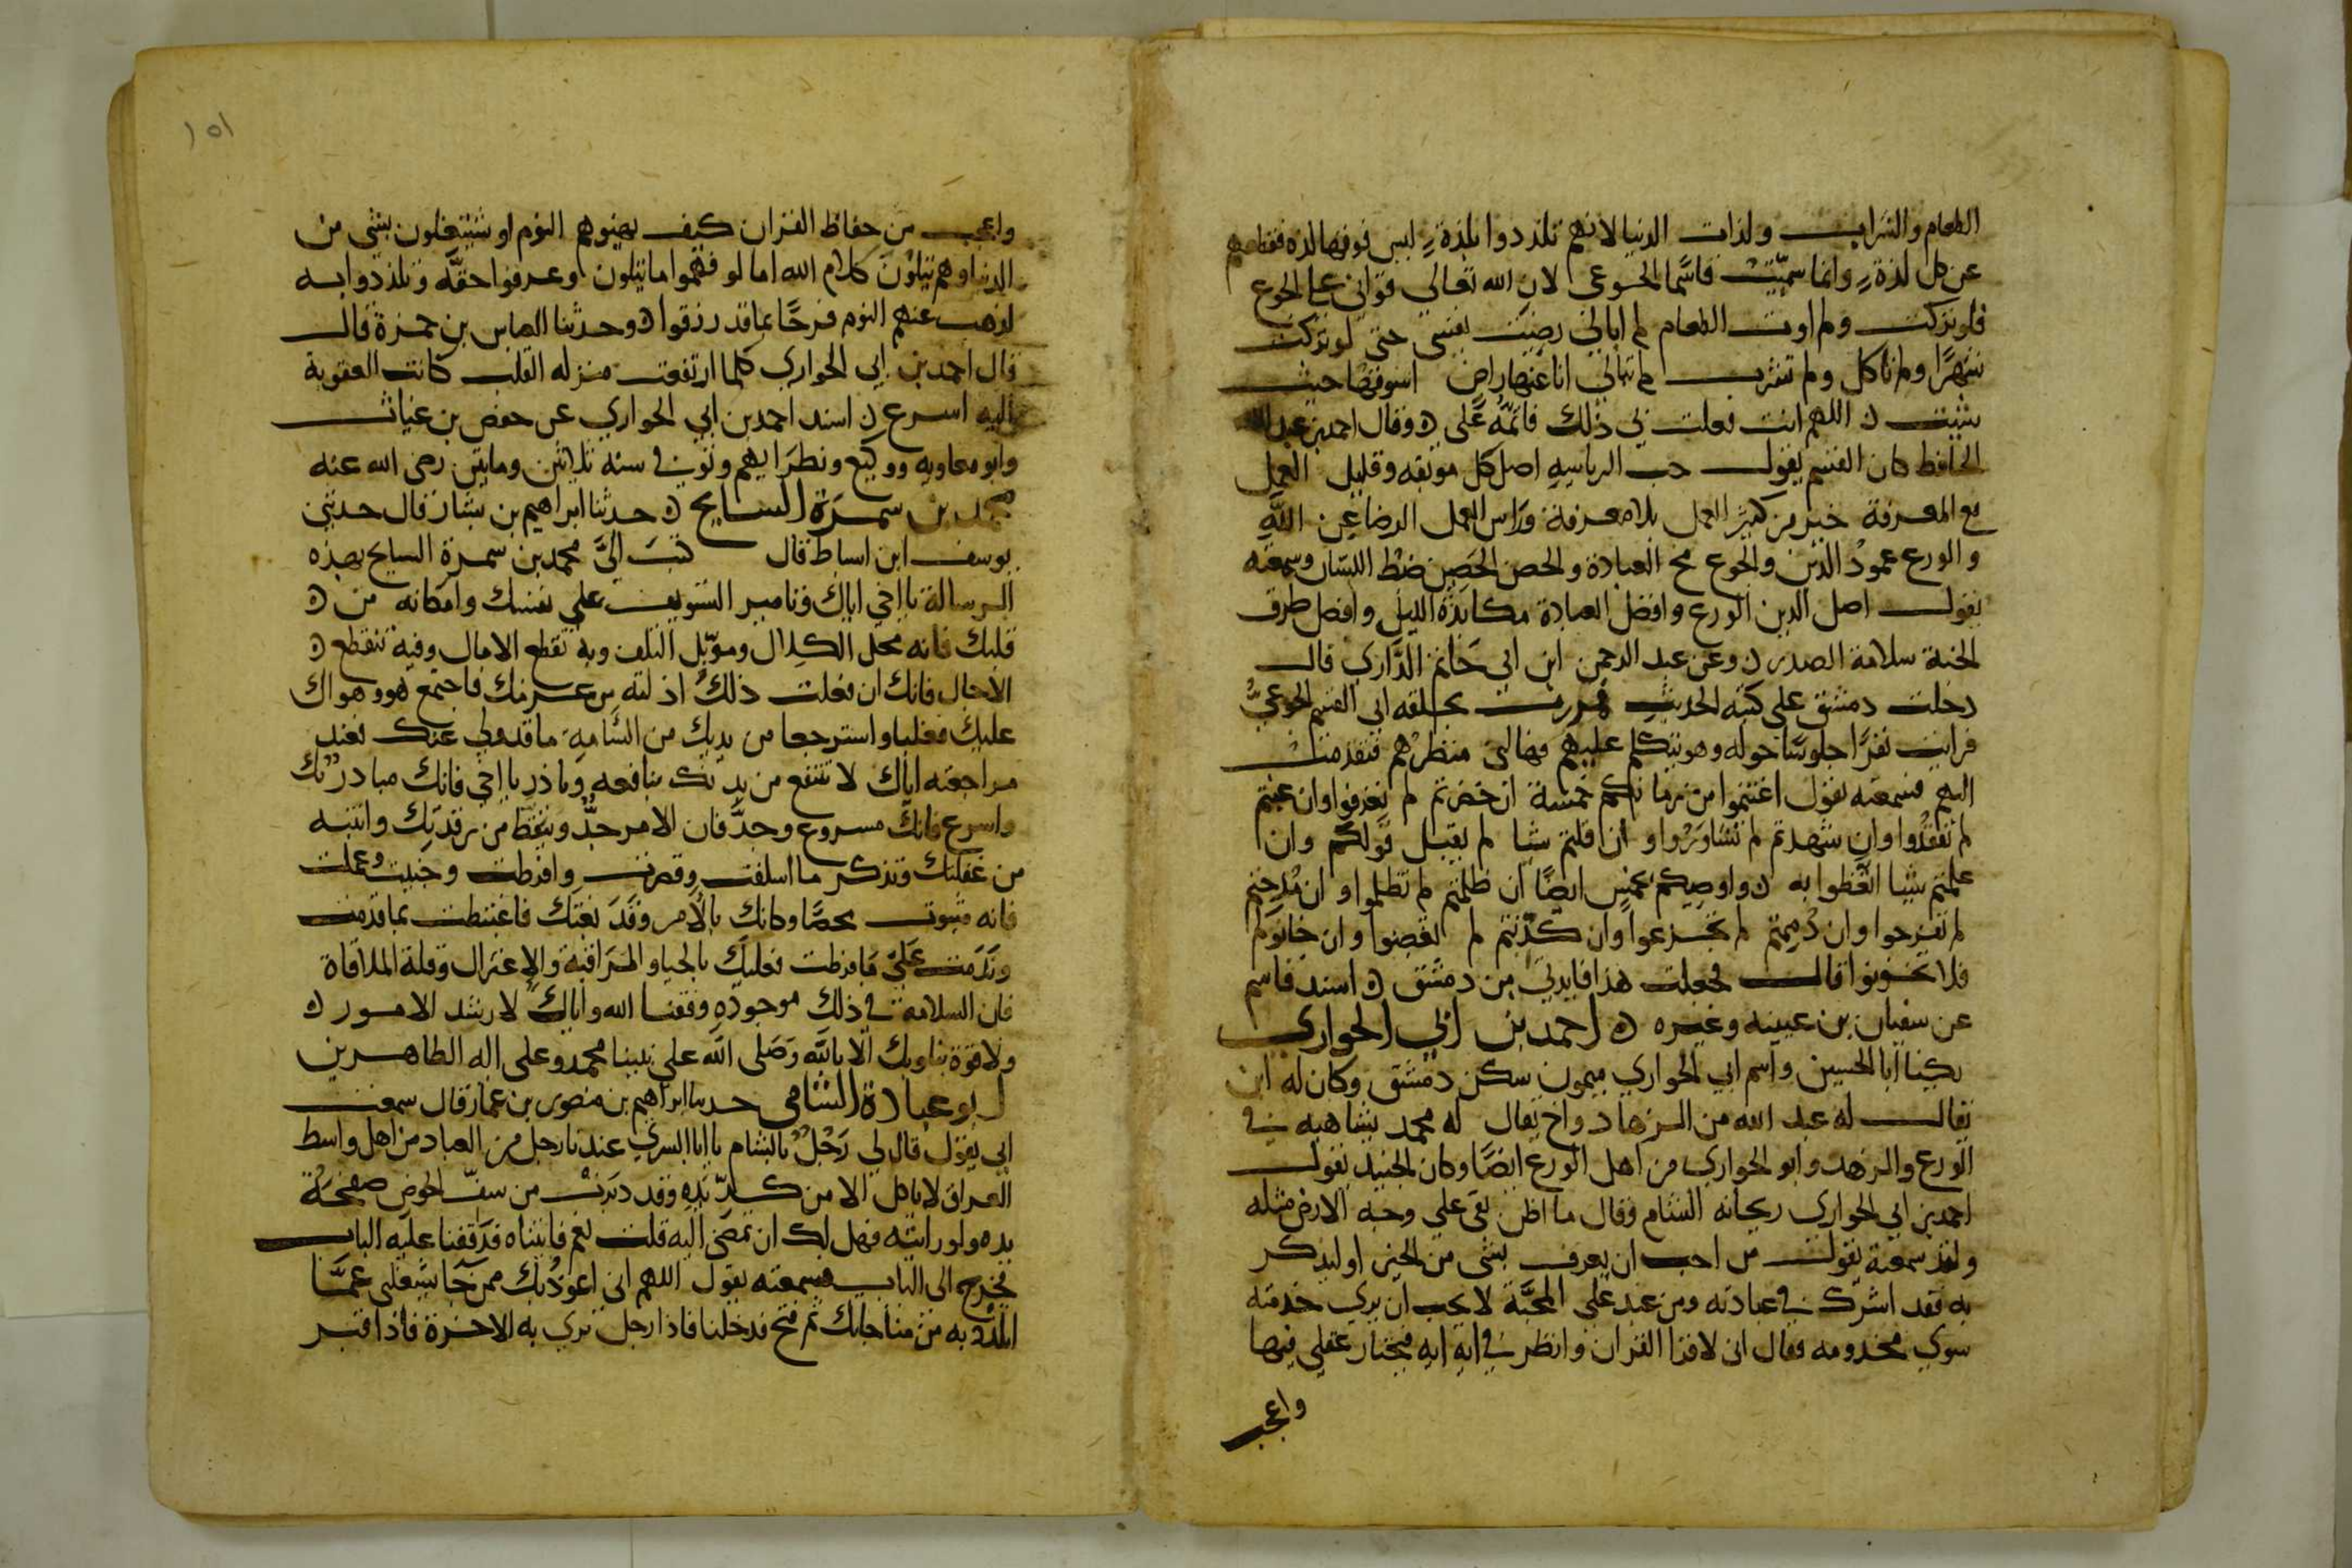 الطعام والشراب ولذات الدنيا لانهم تلذذوا بلذة ليس فوقها لذه فقطعهم
عن كل لذة وانما سميت قاسما الجوعى لان الله تعالى قوانى على الجوع
فلو تركت ولم اوت الطعام لم ابالى رضيت نفسى حتى لو تركت
شهرا ولم تاكل ولم تشرب لم تبالى انا عنها راض اسوقها حيث
شيت ه اللهم انت فعلت بى ذلك فاتمه على ه وقال احمد بن عبد الله
الحافظ كان القسم يقول حب الرياسه اصل كل موبقه وقليل العمل
مع المعرفة خير من كثير العمل بلا معرفة وراس العمل الرضا عن الله
والورع عمود الدين والجوع مخ العبادة والحصن الحصين ضبط اللسان وسمعته
يقول اصل الدين الورع وافضل العبادة مكابدة الليل وافضل طرق
الجنة سلامة الصدر ه وعن عبد الرحمن ابن ابى حاتم الرازى قال
دخلت دمشق على كتبه الحديث فمررت بحلقه ابى القسم الجوعى
فرايت نفرا جلوسا حوله وهو يتكلم عليهم فهالنى منظرهم فتقدمت
اليهم فسمعته يقول اغتنموا من زمانكم خمسة ان حضرتم لم تعرفوا وان غبتم
لم تفقدوا وان شهدتم لم تشاوروا وان قلتم شيا لم يقبل قولكم وان
علمتم شيا لم تعطوا به ه واوصيكم بخمس ايضا ان ظلمتم لم تظلموا وان مدحتم
لم تفرحوا وان ذميتم لم تجزعوا وان كذبتم لم تغضبوا وان خانوكم
فلا تخونوا قال فجعلت هذا فايدتى من دمشق ه اسند قاسم
عن سفيان بن عيينه وغيره ه احمد بن ابى الحوارى
يكنا ابا الحسين واسم ابى الحوارى ميمون سكن دمشق وكان له ابن
يقال له عبد الله من الزهاد واخ يقال له محمد يشاهيه فى
الورع والزهد وابو الحوارى من اهل الورع ايضا وكان الجنيد يقول
احمد بن ابى الحوارى ريحانه الشام وقال ما اظن بقى على وجه الارض مثله
ولقد سمعته يقول من احب ان يعرف بشى من الخير او ليذكر
به فقد اشرك فى عبادته ومن عبد على المحبة لا يحب ان يرى خدمته
سوى مخدومه وقال انى لاقرا القران وانظر فى ايه ايه فيحتار عقلى فيها
واعجب
١٥١
واعجب من حفاظ القران كيف يهنيهم النوم او يشتغلون بشى من
الدنيا وهم يتلون كلام الله اما لو فهموا ما يتلون وعرفوا حقه وتلذذوا به
لذهب عنهم النوم فرحا بما قد رزقوا ه وحدثنا العباس بن حمزة قال
قال احمد بن ابى الحوارى كلما ارتفعت منزله القلب كانت العقوبة
اليه اسرع ه اسند احمد بن ابى الحوارى عن حفص بن غياث
وابو معاويه ووكيع ونظرايهم وتوفى فى سنه ثلاثين ومايتين رضى الله عنه
محمد بن سمرة السايح ه حدثنا ابراهيم بن بشار قال حدثنى
يوسف ابن اساط قال كتب الى محمد بن سمرة السايح بهذه
الرسالة يا اخى اياك وتامير التسويف على نفسك وامكانه من ه
قلبك فانه محل الكلال وموبل التلف وبه تقطع الامال وفيه تنقطع ه
الاجال فانك ان فعلت ذلك اذ لته من عزمك فاجتمع هو وهواك
عليك فغلبا واسترجعا من يديك من السامه ما قد ولى عنك فعند
مراجعته اياك لا تنتفع من بدنك بنافعه وبادر يا اخى فانك مبادر بك
واسرع فانك مسروع وجد فان الامر جد وتيقظ من رقدتك وانتبه
من غفلتك وتذكر ما اسلفت وقصرت وافرطت وجنيت وعملت
فانه مثبوت محصا وكانك بالامر وقد بغتك فاغتبطت بما قدمت
وندمت على ما فرطت فعليك بالحيا والمراقبة والاعتزال وقلة الملاقاة
فان السلامة فى ذلك موجوده وفقنا الله واياك لارشد الامور ه
ولا قوة بنا وبك الا بالله وصلى الله على نبينا محمد وعلى اله الطاهرين
ابو عبادة الشامى حدثنا ابراهيم بن منصور بن عمار قال سمعت
ابى يقول قال لى رجل بالشام يا ابا السرى عندنا رجل من العباد من اهل واسط
العراق لا ياكل الا من كد يده وقد دبرت من سف الخوص صفحة
يده ولو رايته فهل لك ان تمضى اليه قلت نعم فاتيناه فدققنا عليه الباب
فخرج الى الباب فسمعته يقول اللهم انى اعوذ بك ممن جا يشغلنى عما
اتلذذ به من مناجاتك ثم فتح فدخلنا فاذا رجل ترى به الاخرة فاذا قبر